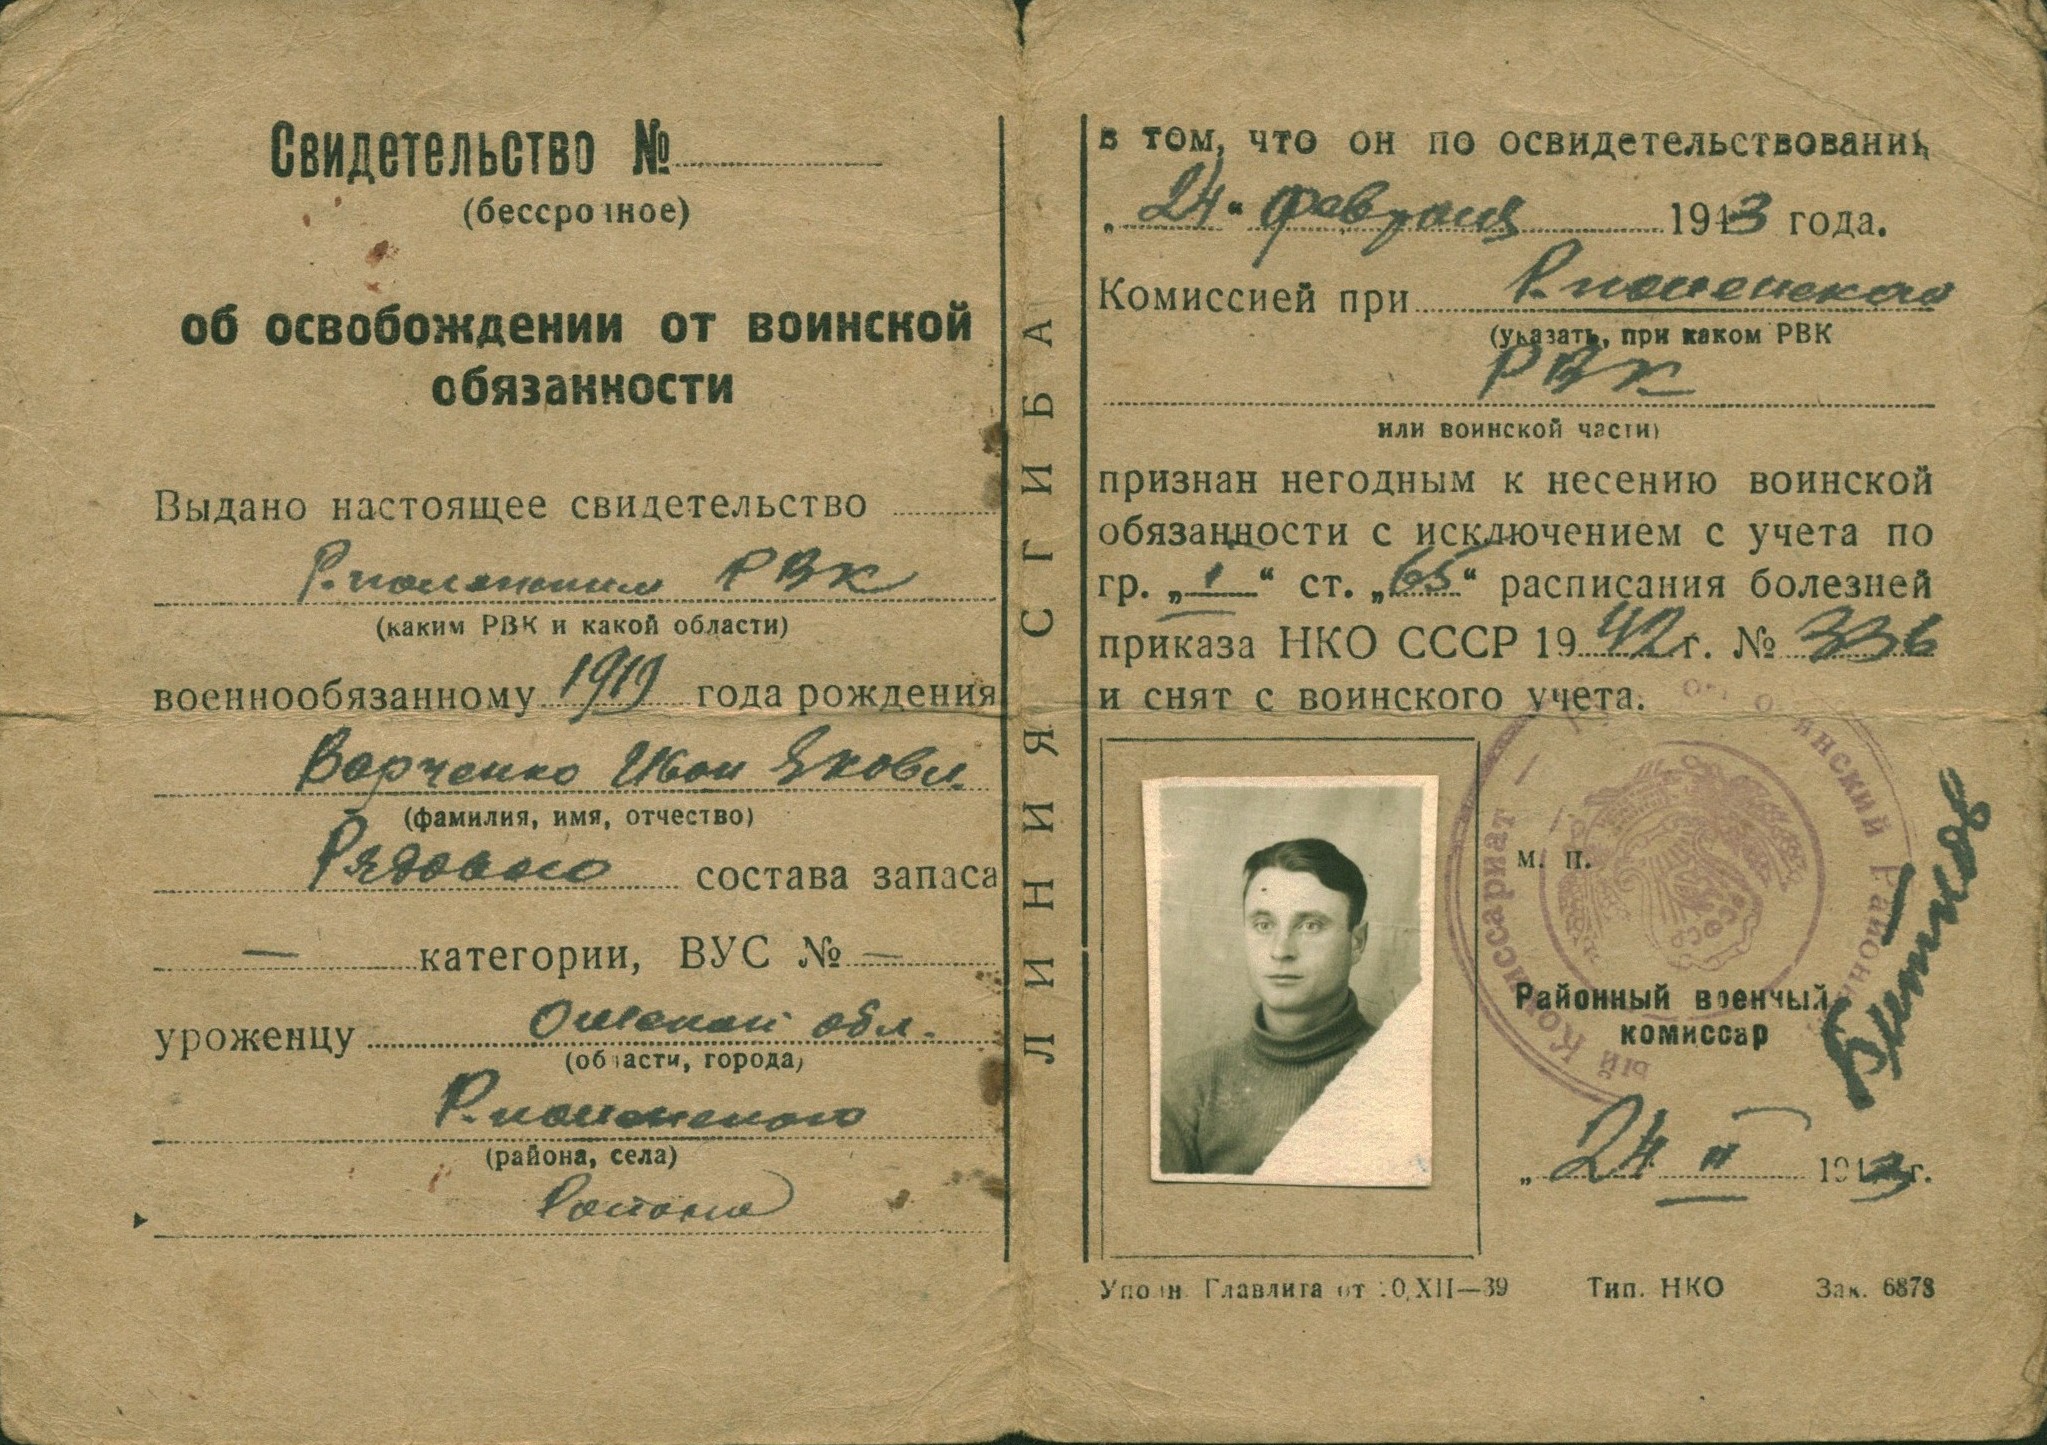 Свидетельство №
(бессрочное)
об освобождении от воинской
обязанности
Выдано настоящее свидетельство
Р.-полянским РВК
(каким РВК и какой области)
военнообязанному 1919 года рождения
Варченко Иван Яковл.
(фамилия, имя, отчество)
Рядового состава запаса
— категории, ВУС № —
уроженцу Омской обл.
(области, города)
Р.-полянского
(района, села)
Района
ЛИНИЯ СГИБА
в том, что он по освидетельствовании
„24“ февраля 1943 года.
Комиссией при Р.-полянском
(указать, при каком РВК
РВК
или воинской части)
признан негодным к несению воинской
обязанности с исключением с учета по
гр. „I“ ст. „65“ расписания болезней
приказа НКО СССР 1942 г. № 336
и снят с воинского учета.
м. п.
Районный военный
комиссар
„24 II 1943 г.
Уполн. Главлита от 10/XII—39 Тип. НКО Зак. 6878
янский Районный Комиссариат
СССР